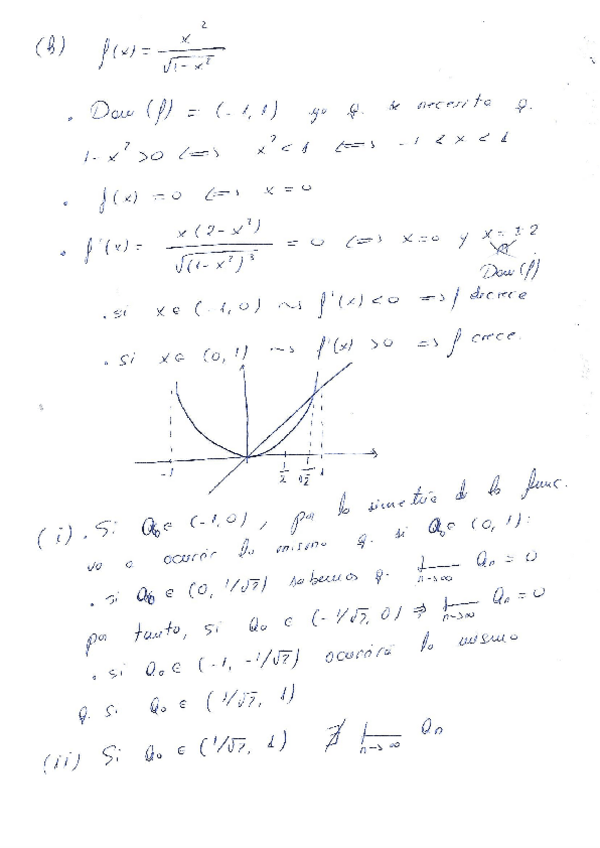 (b) f(x) = x² / √(1-x²)
• Dom (f) = (-1, 1) ya q. se necesita q.
1-x² > 0 <=> x² < 1 <=> -1 < x < 1
• f(x) = 0 <=> x = 0
• f'(x) = x(2-x²) / √((1-x²)³) = 0 <=> x=0 y x = ±2
Dom (f)
• si x ∈ (-1, 0) ⇝ f'(x) < 0 => f decrece
• si x ∈ (0, 1) ⇝ f'(x) > 0 => f crece.
-1 1/2 1/√2 1
(i) • Si a₀ ∈ (-1, 0), por la simetría de la func.
va a ocurrir lo mismo q. si a₀ ∈ (0, 1):
• si a₀ ∈ (0, 1/√2) sabemos q. l_{n→∞} aₙ = 0
por tanto, si a₀ ∈ (-1/√2, 0) => l_{n→∞} aₙ = 0
• si a₀ ∈ (-1, -1/√2) ocurrirá lo mismo
q. si a₀ ∈ (1/√2, 1)
(ii) Si a₀ ∈ (1/√2, 1) ∄ l_{n→∞} aₙ